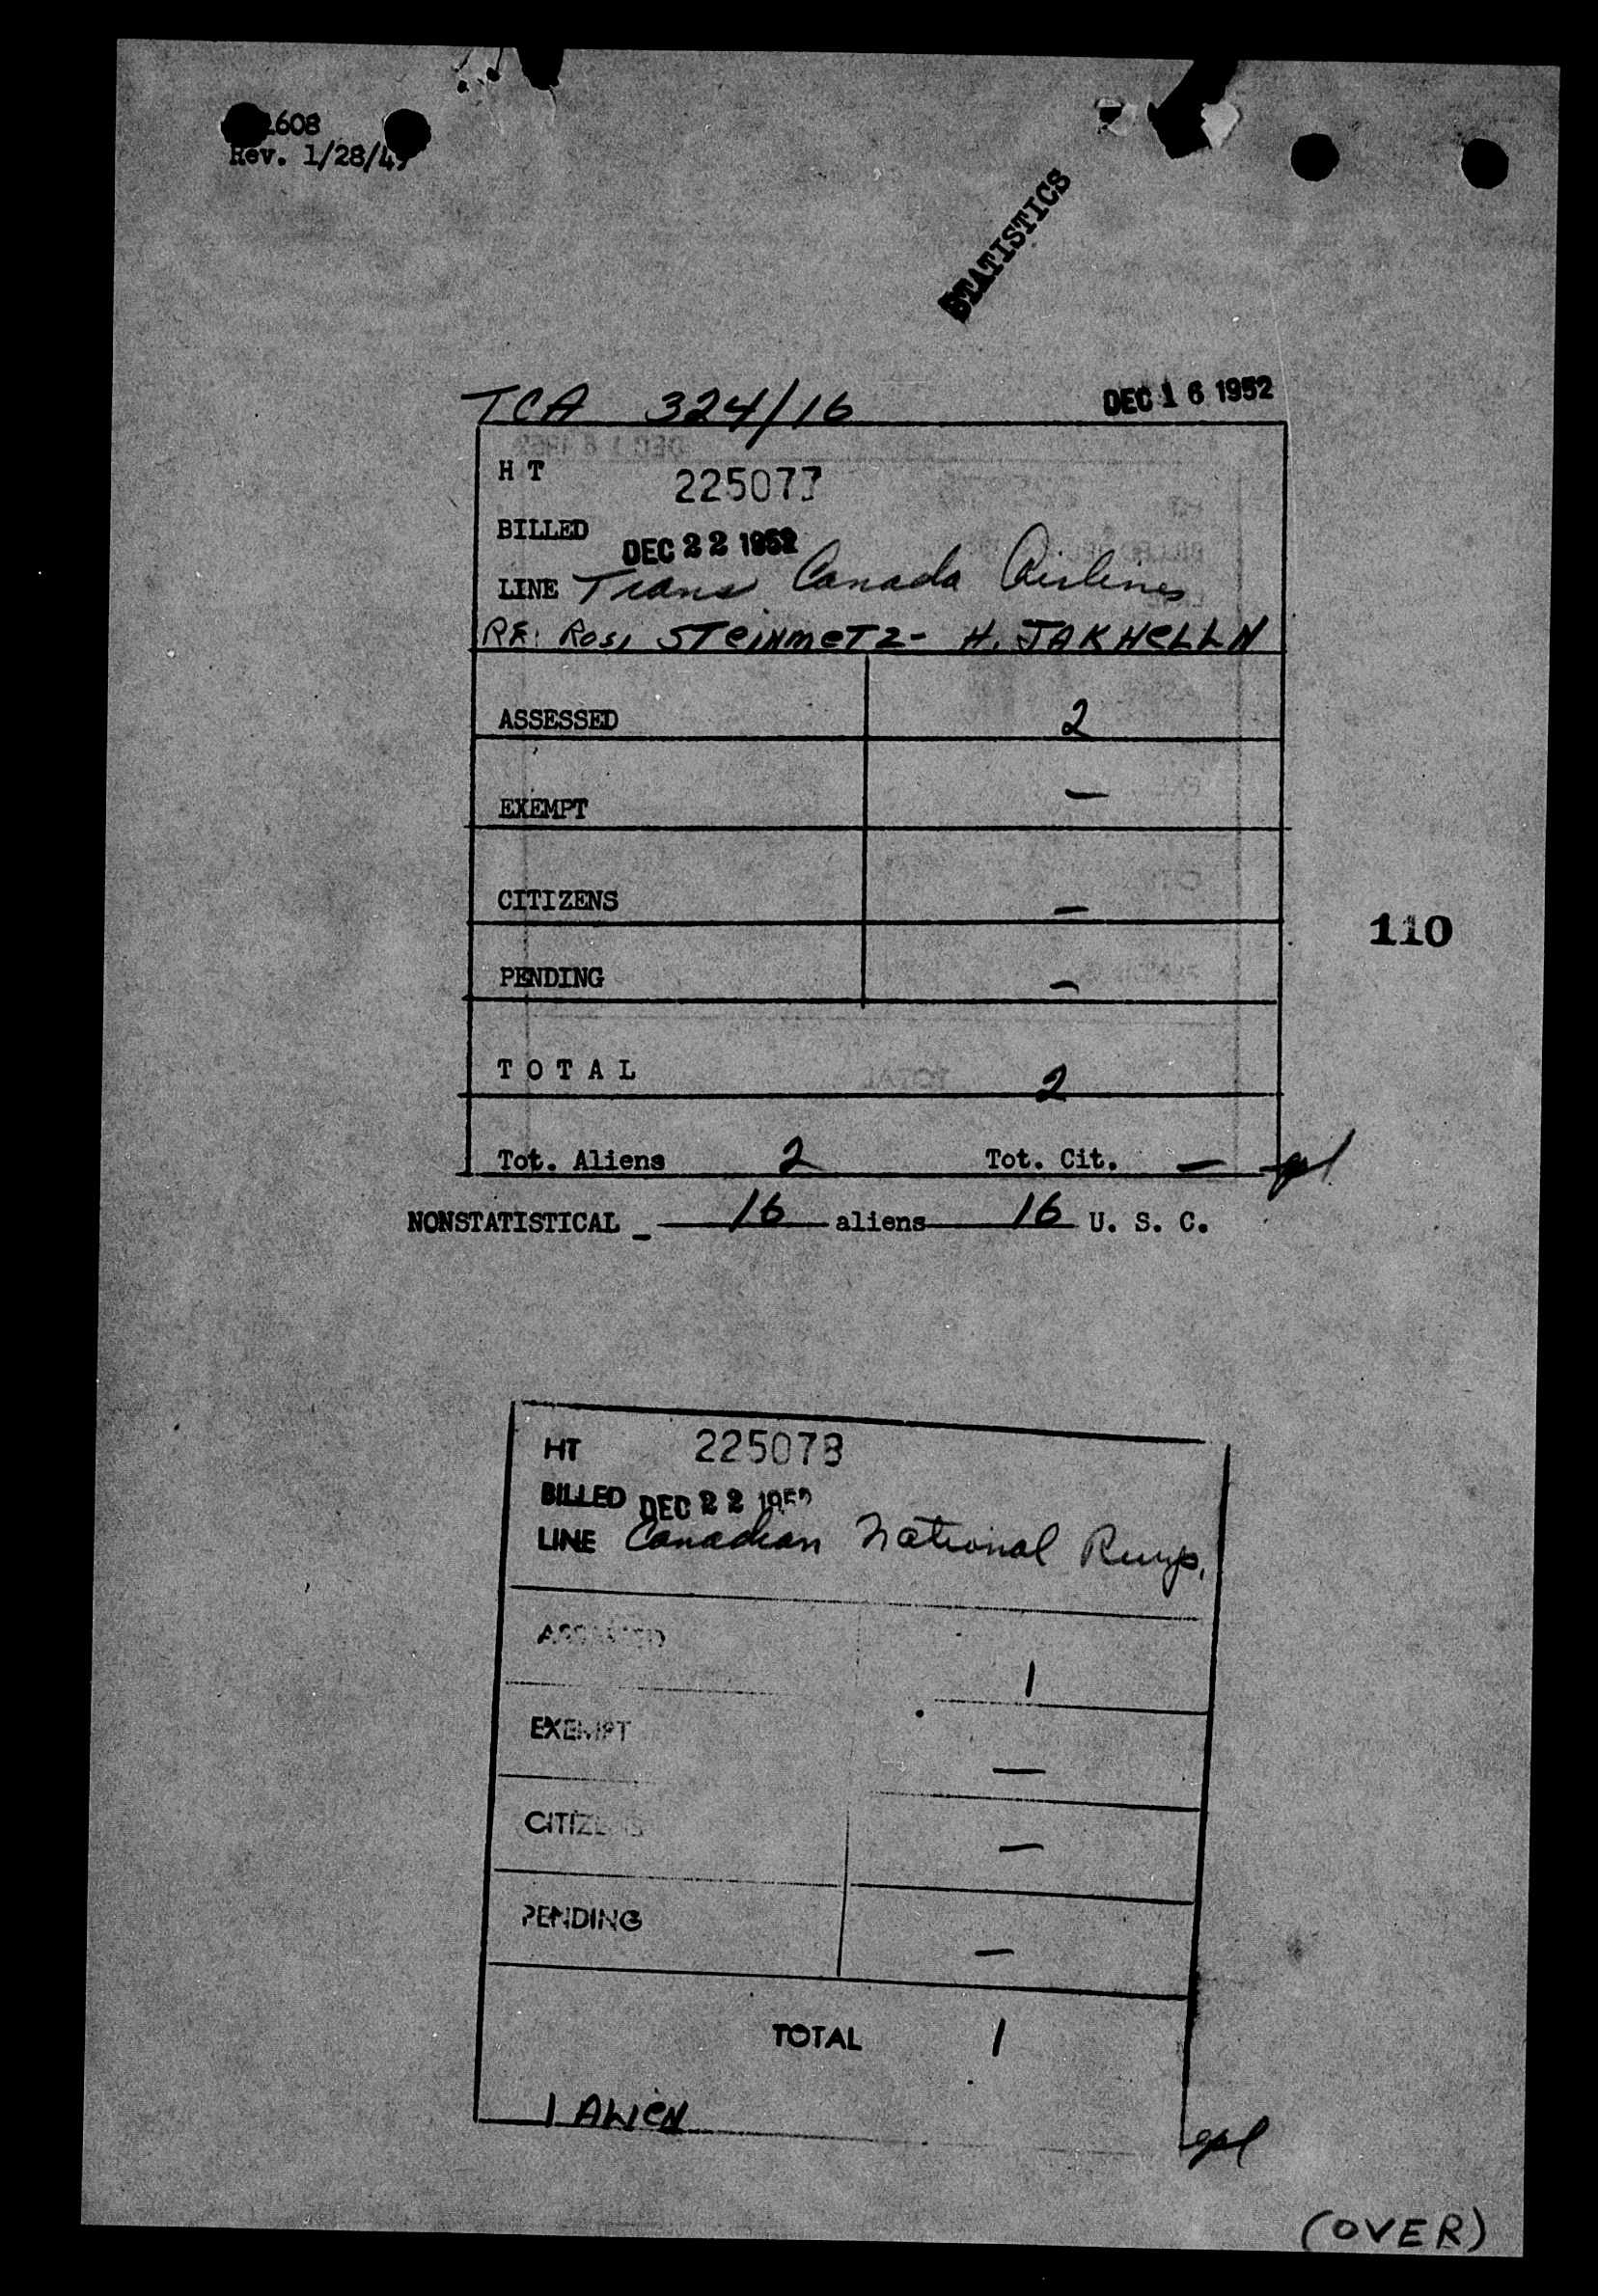 1608
Rev. 1/28/49
STATISTICS
TCA 324/16 DEC 16 1952
H T 225077
BILLED DEC 22 1952
LINE Trans Canada Airlines
RE: Rosi STEINMETZ - H. JAKHELLN
ASSESSED 2
EXEMPT —
CITIZENS —
110
PENDING —
T O T A L 2
Tot. Aliens 2 Tot. Cit. —
NONSTATISTICAL - 16 aliens 16 U. S. C.
HT 225078
BILLED DEC 22 1952
LINE Canadian National Rwys.
ASSESSED 1
EXEMPT —
CITIZENS —
PENDING —
TOTAL 1
1 ALIEN
(OVER)